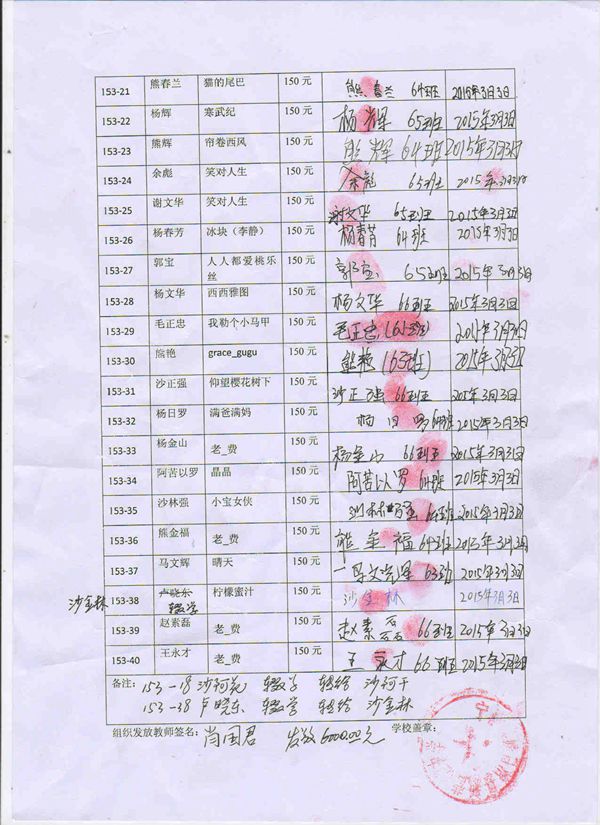 153-21 熊春兰 猫的尾巴 150 元 熊春兰 64班 2015年3月3日
153-22 杨辉 寒武纪 150 元 杨辉 65班 2015年3月3日
153-23 熊辉 帘卷西风 150 元 熊辉 64班 2015年3月3日
153-24 余彪 笑对人生 150 元 余彪 65班 2015年3月3日
153-25 谢文华 笑对人生 150 元 谢文华 65班 2015年3月3日
153-26 杨春芳 冰块（李静） 150 元 杨春芳 64班 2015年3月3日
153-27 郭宝 人人都爱桃乐丝 150 元 郭宝 65班 2015年3月3日
153-28 杨文华 西西雅图 150 元 杨文华 66班 2015年3月3日
153-29 毛正忠 我勒个小马甲 150 元 毛正忠 2015年3月3日
153-30 熊艳 grace_gugu 150 元 熊艳 2015年3月3日
153-31 沙正强 仰望樱花树下 150 元 沙正强 66班 2015年3月3日
153-32 杨日罗 满爸满妈 150 元 杨日罗 2015年3月3日
153-33 杨金山 老_费 150 元 杨金山 66班 2015年3月3日
153-34 阿苦以罗 晶晶 150 元 阿苦以罗 64班 2015年3月3日
153-35 沙林强 小宝女侠 150 元 2015年3月3日
153-36 熊金福 老_费 150 元 熊金福 64班 2015年3月3日
153-37 马文辉 晴天 150 元 2015年3月3日
沙金林 153-38 卢晓东 转学 柠檬蜜汁 150 元 沙金林 2015年3月3日
153-39 赵素磊 老_费 150 元 赵素磊 66班 2015年3月3日
153-40 王永才 老_费 150 元 王永才 66班 2015年3月3日
备注： 153-18 转学 转给
153-38 卢晓东 转学 转给 沙金林
组织发放教师签名： 肖国君 发放6000.00元 学校盖章：